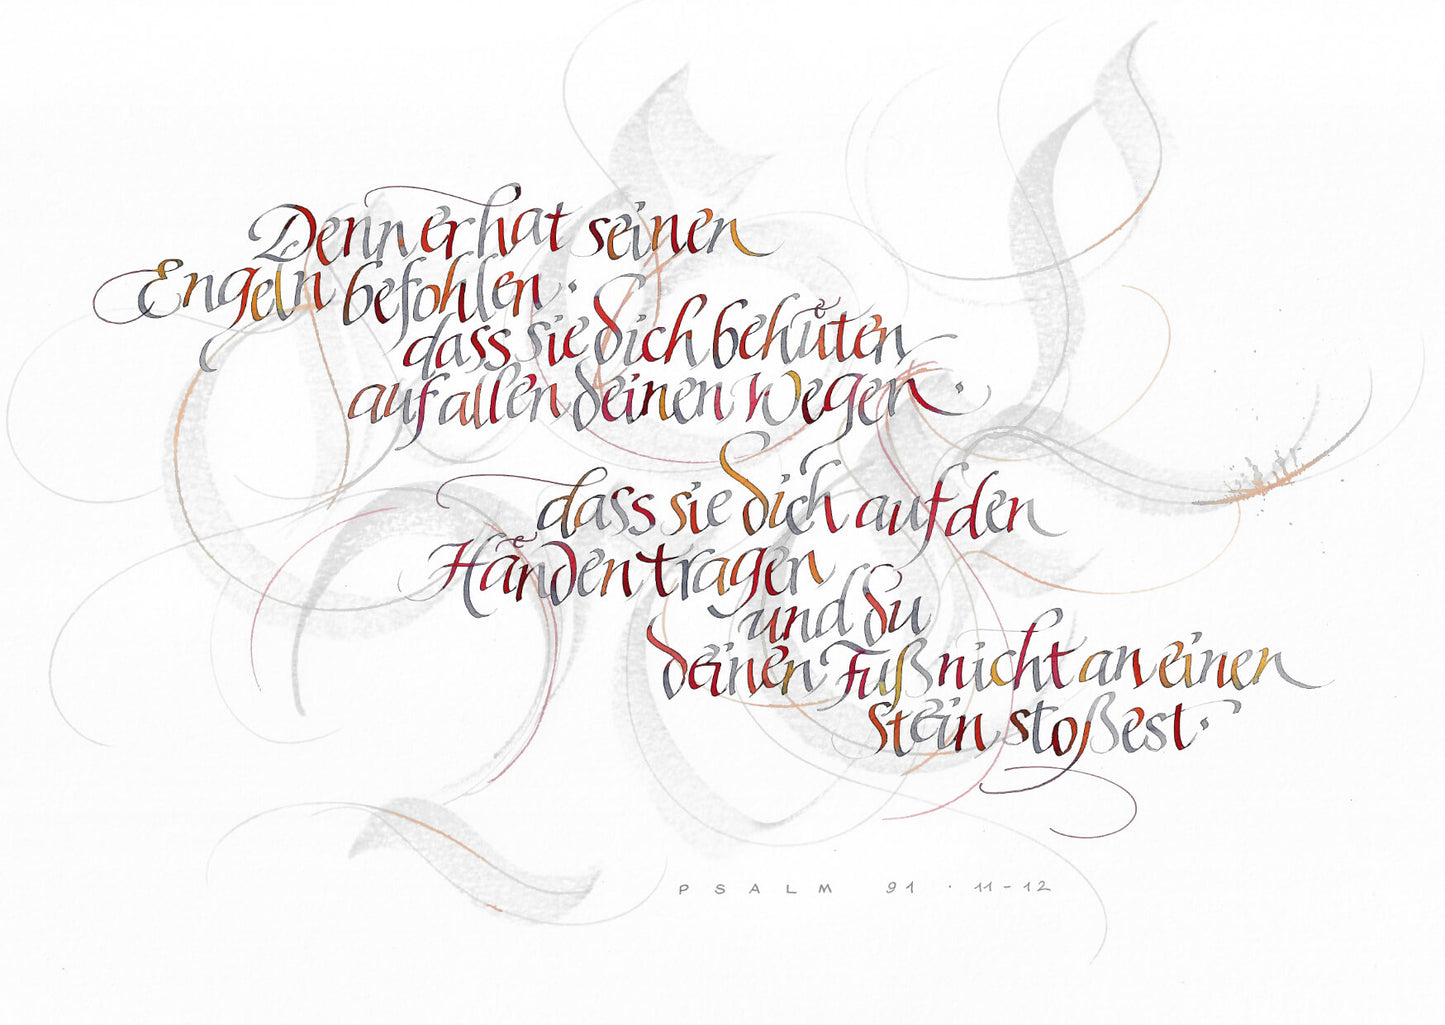 Denn er hat seinen
Engeln befohlen ·
dass sie dich behüten
auf allen deinen Wegen ·
dass sie dich auf den
Händen tragen
und du
deinen Fuß nicht an einen
Stein stoßest ·
PSALM 91 · 11-12